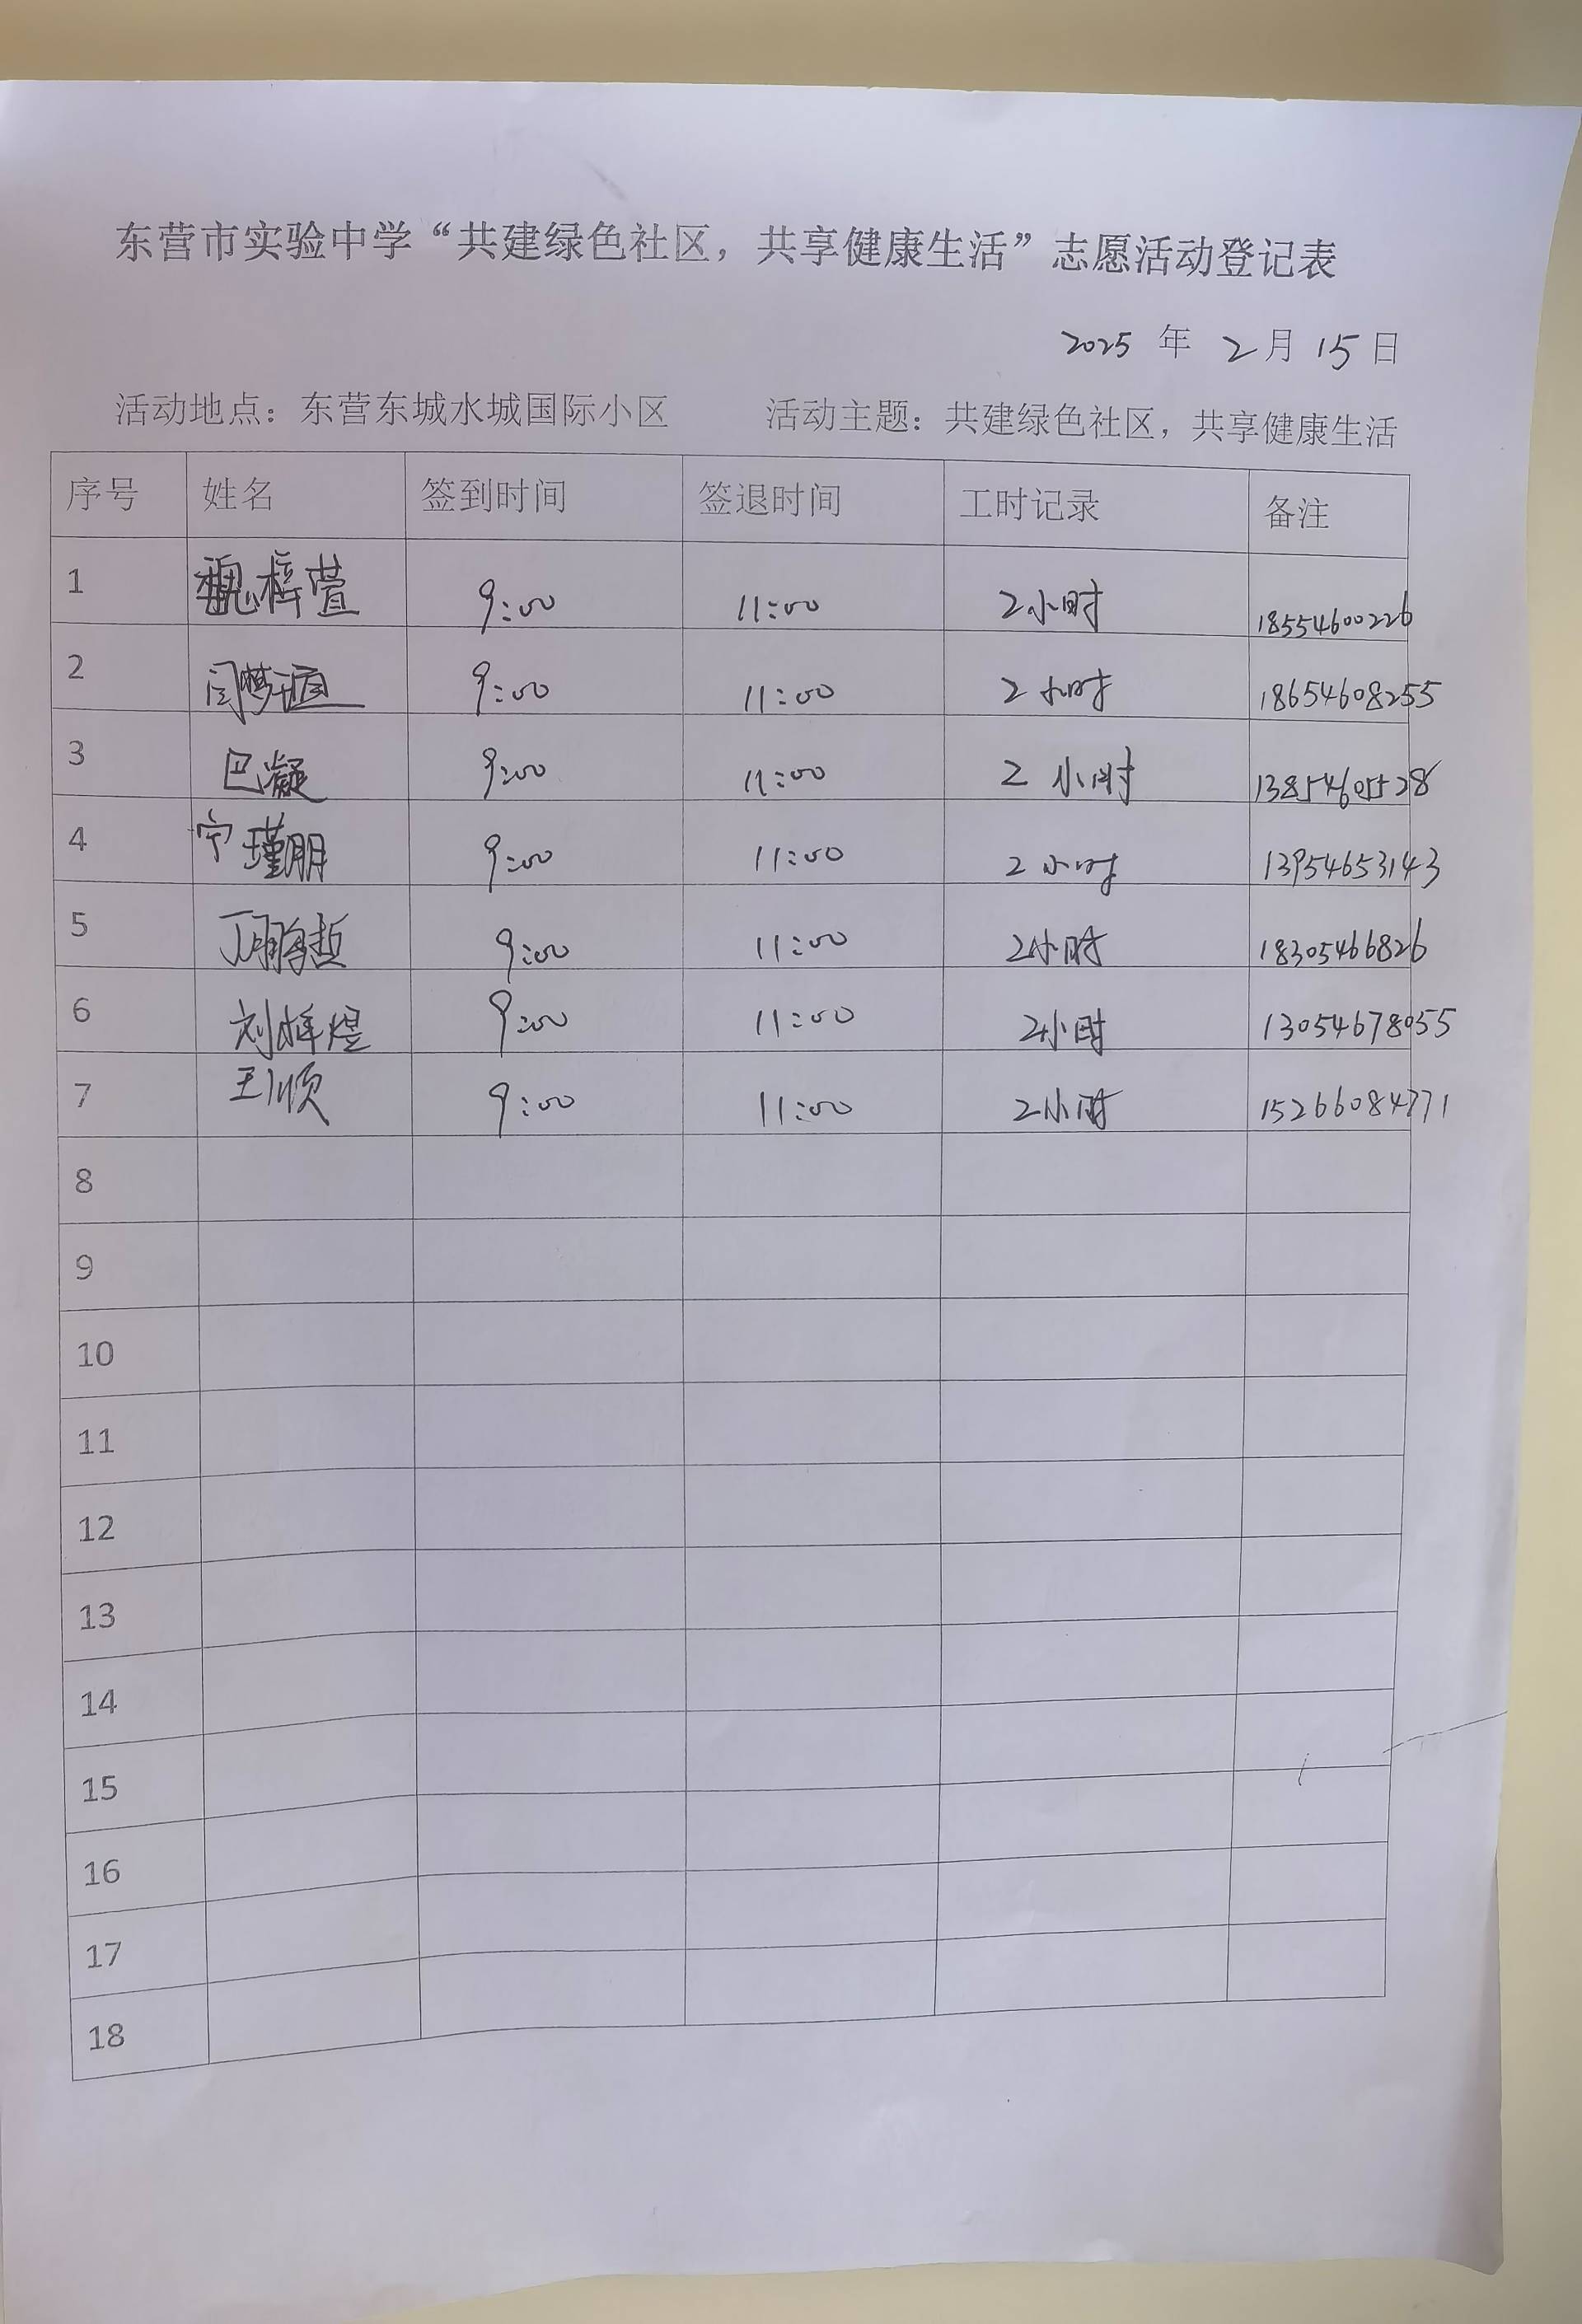 东营市实验中学“共建绿色社区，共享健康生活”志愿活动登记表
2025 年 2 月 15 日
活动地点：东营东城水城国际小区 活动主题：共建绿色社区，共享健康生活
序号 姓名 签到时间 签退时间 工时记录 备注
1 魏梓萱 9:00 11:00 2小时 18554600226
2 闫梦 9:00 11:00 2小时 18654608255
3 巴凝 9:00 11:00 2小时 13854605528
4 宁瑾朋 9:00 11:00 2小时 13954653143
5 丁鹏哲 9:00 11:00 2小时 18305466826
6 刘梓煜 9:00 11:00 2小时 13054678055
7 王顺 9:00 11:00 2小时 15266084771
8
9
10
11
12
13
14
15
16
17
18